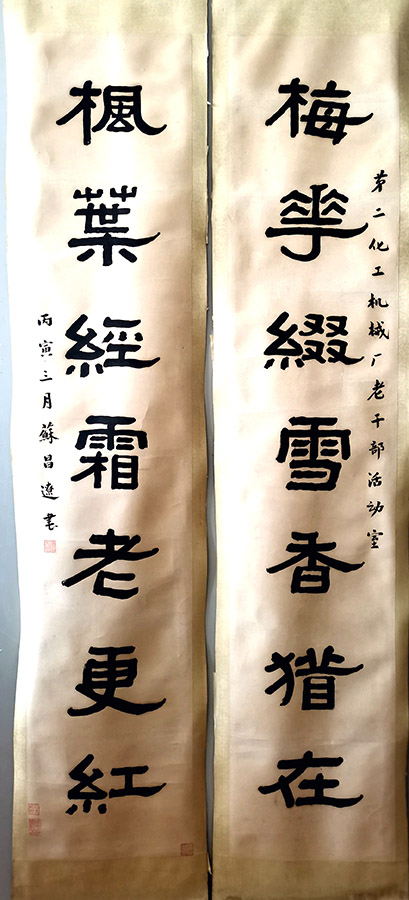 第二化工机械厂老干部活动室
梅华綴雪香猶在
楓葉經霜老更紅
丙寅三月蘇昌遼書